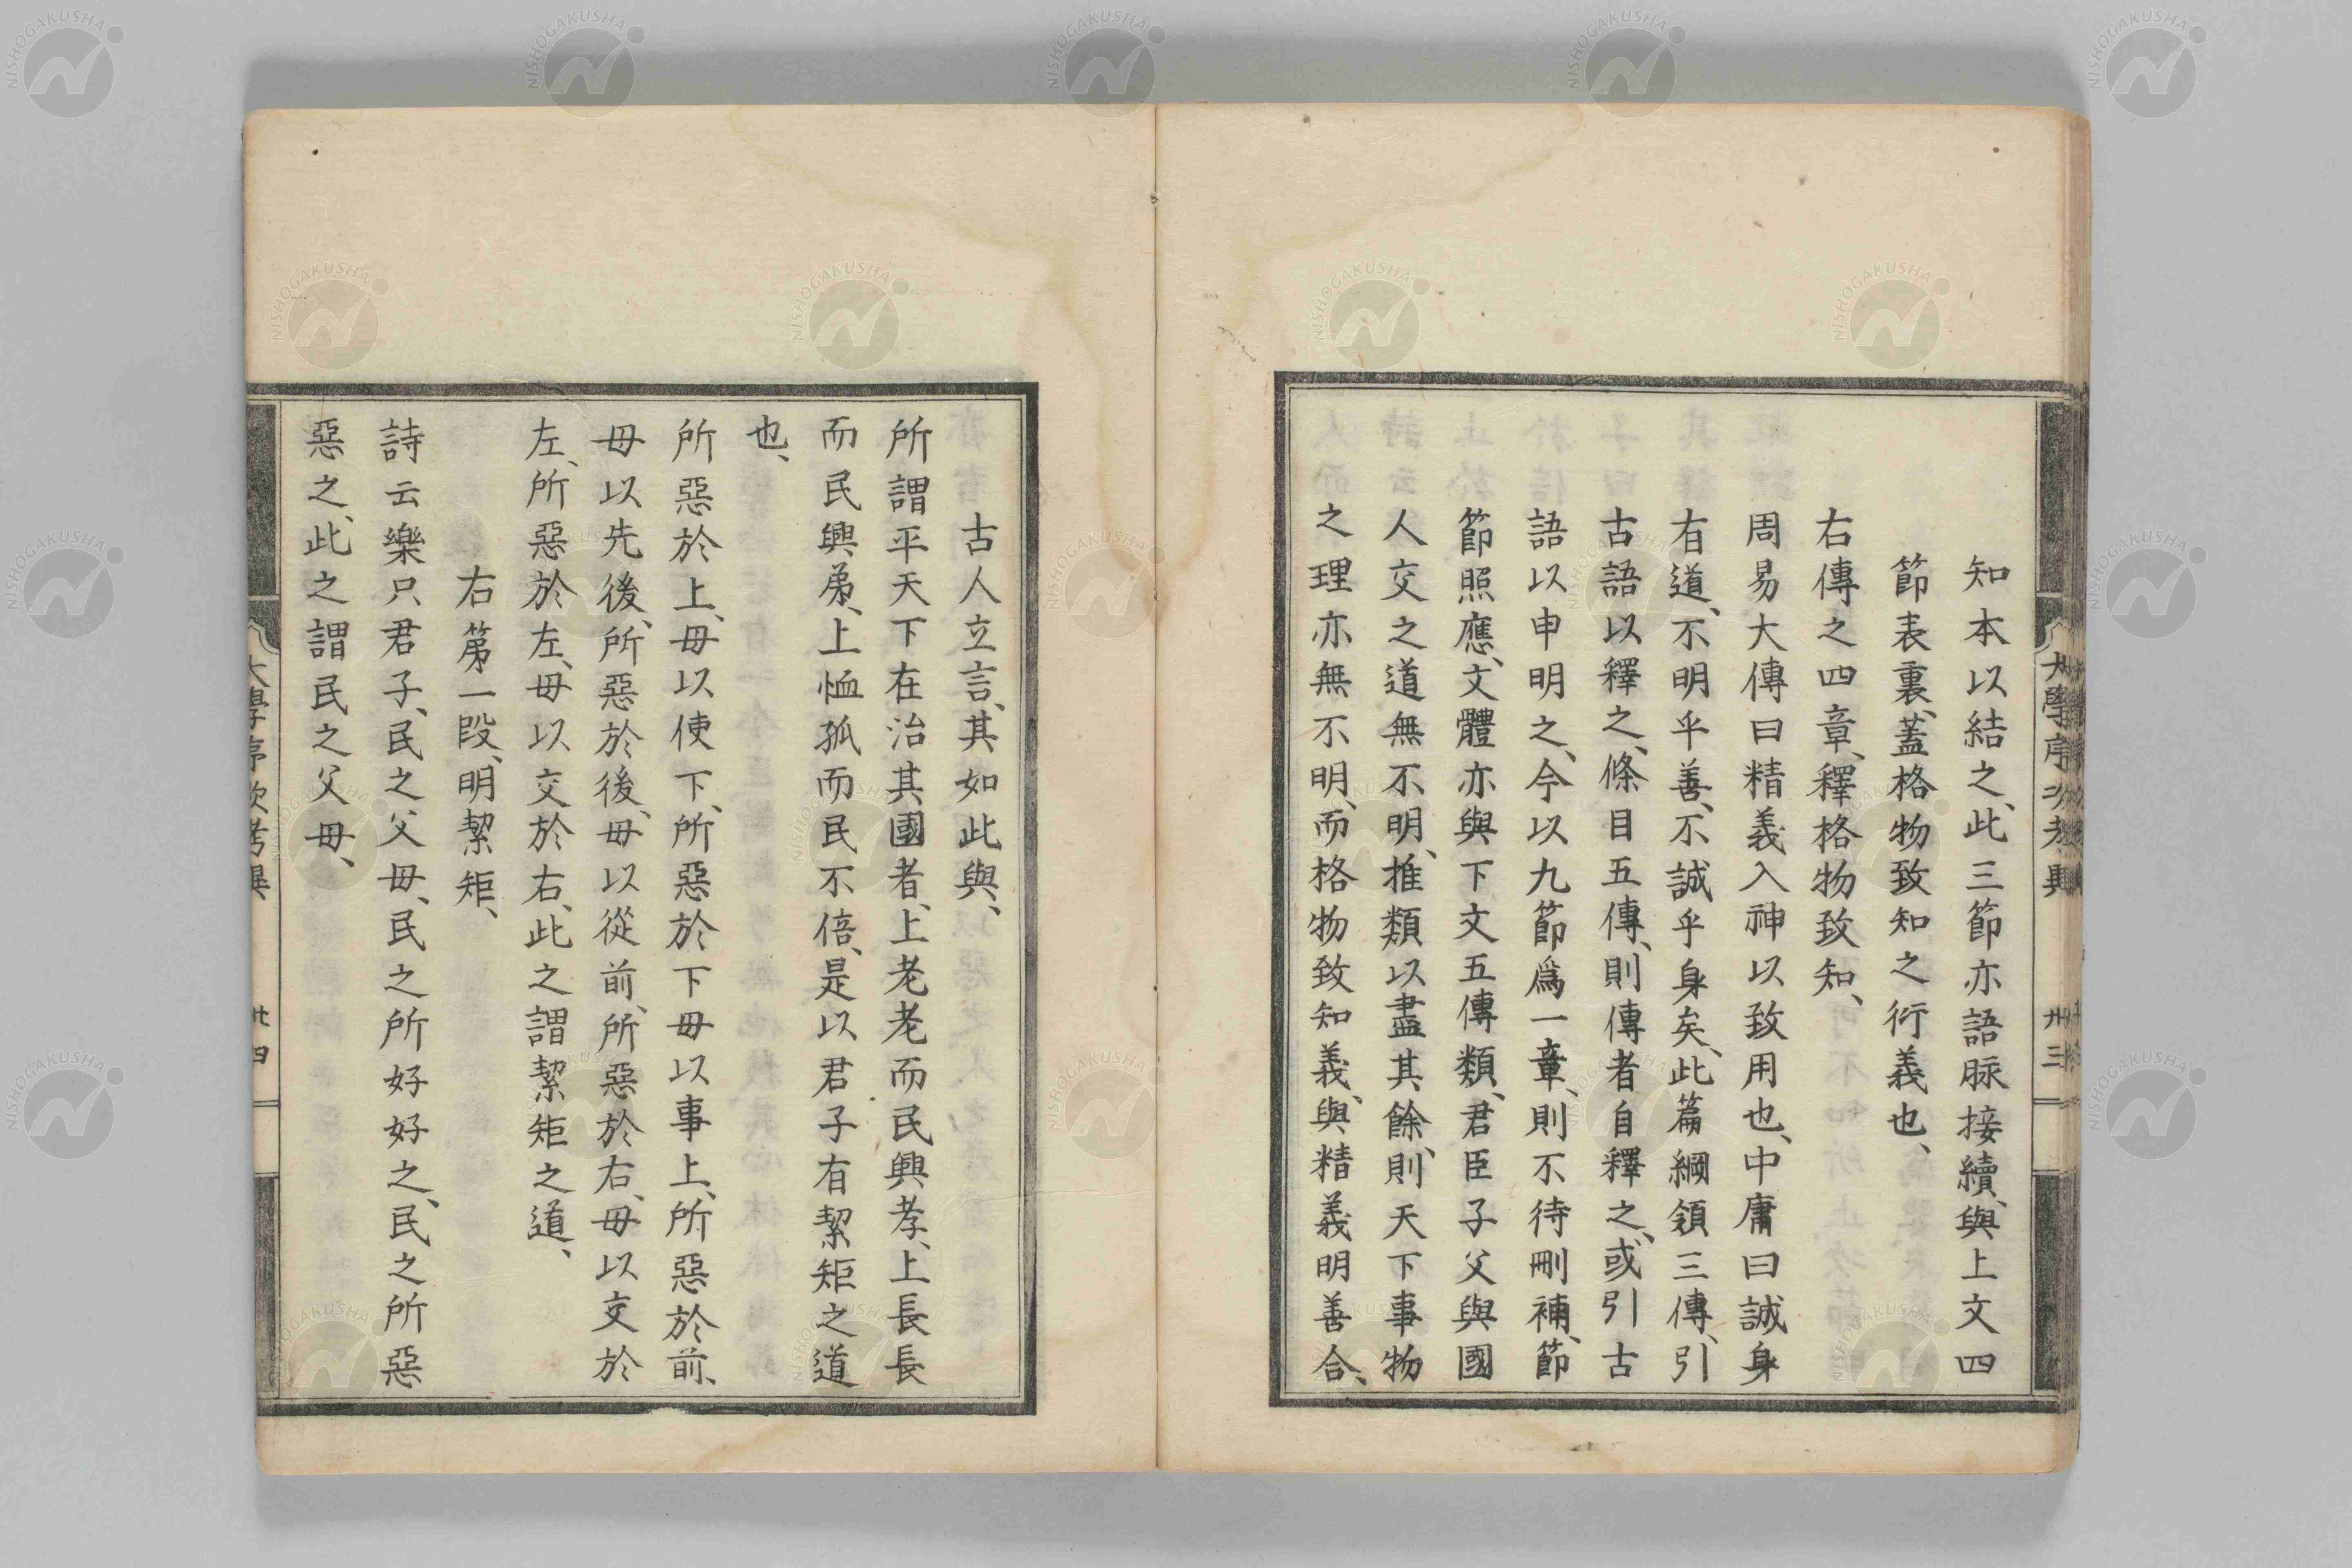 知本以結之、此三節亦語脉接續、與上文四
節表裏、蓋格物致知之衍義也、
右傳之四章、釋格物致知、
周易大傳曰精義入神以致用也、中庸曰誠身
有道、不明乎善、不誠乎身矣、此篇綱領三傳、引
古語以釋之、條目五傳、則傳者自釋之、或引古
語以申明之、今以九節爲一章、則不待刪補、節
節照應、文體亦與下文五傳類、君臣子父與國
人交之道無不明、推類以盡其餘、則天下事物
之理亦無不明、而格物致知義、與精義明善合、
大學序次考異 卅三
古人立言、其如此與、
所謂平天下在治其國者、上老老而民興孝、上長長
而民興弟、上恤孤而民不倍、是以君子有絜矩之道
也、
所惡於上、毋以使下、所惡於下毋以事上、所惡於前、
毋以先後、所惡於後、毋以從前、所惡於右、毋以交於
左、所惡於左、毋以交於右、此之謂絜矩之道、
右第一段、明絜矩、
詩云樂只君子、民之父母、民之所好好之、民之所惡
惡之、此之謂民之父母、
大學序次考異
NISHOGAKUSHA